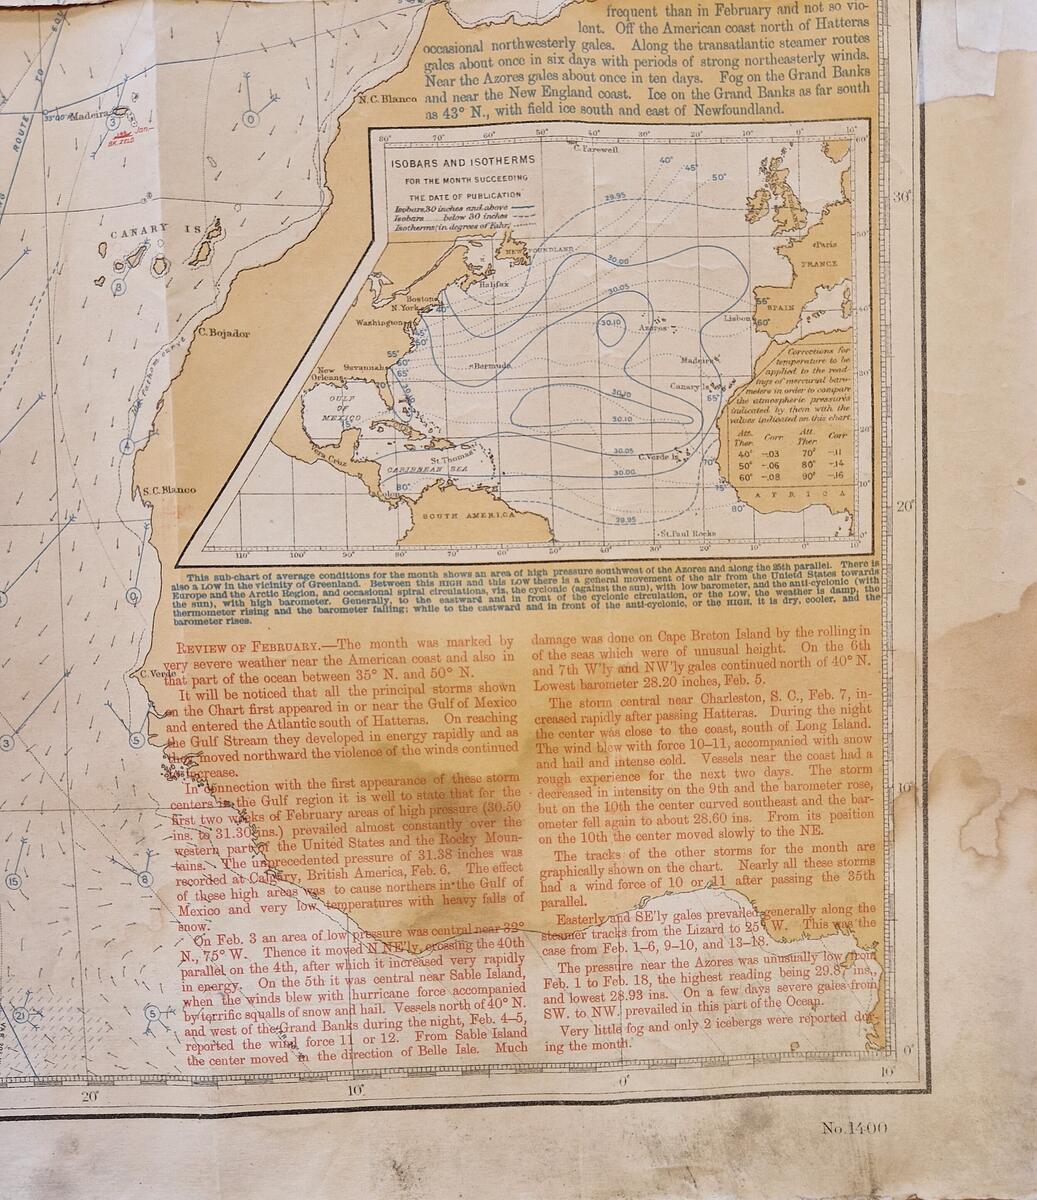 frequent than in February and not so vio-
lent. Off the American coast north of Hatteras
occasional northwesterly gales. Along the transatlantic steamer routes
gales about once in six days with periods of strong northeasterly winds.
Near the Azores gales about once in ten days. Fog on the Grand Banks
and near the New England coast. Ice on the Grand Banks as far south
as 43° N., with field ice south and east of Newfoundland.
ROUTE
TO
Madeira
3
0
N.C. Blanco
CANARY IS
8
C. Bojador
S.C. Blanco
C. Verde
30°
20°
10°
0°
ISOBARS AND ISOTHERMS
FOR THE MONTH SUCCEEDING
THE DATE OF PUBLICATION
Isobars, 30 inches and above
Isobars below 30 inches
Isotherms (in degrees of Fahr.
80° 70° 60° 50° 40° 30° 20° 10° 0° 10°
C. Farewell
40°
45°
50°
29.95
30.00
30.05
30.10
NEWFOUNDLAND
Halifax
Boston
N. York
Washington
Savannah
New Orleans
GULF
OF
MEXICO
Vera Cruz
Bermuda
Azores
Lisbon
SPAIN
Paris
FRANCE
Madeira
Canary Is
St. Thomas
CARIBBEAN SEA
Colon
C. Verde Is
SOUTH AMERICA
St. Paul Rocks
AFRICA
30.10
30.10
30.05
30.00
29.95
Corrections for
temperature to be
applied to the read-
ings of mercurial baro-
meters in order to compare
the atmospheric pressures
indicated by them with the
values indicated on this chart.
Att. Ther. Corr. Att. Ther. Corr
40° -.03 70° -.11
50° -.06 80° -.14
60° -.08 90° -.16
110° 100° 90° 80° 70° 60° 50° 40° 30° 20° 10° 0° 10°
This sub-chart of average conditions for the month shows an area of high pressure southwest of the Azores and along the 25th parallel. There is
also a LOW in the vicinity of Greenland. Between this HIGH and this LOW there is a general movement of the air from the United States towards
Europe and the Arctic Region, and occasional spiral circulations, viz, the cyclonic (against the sun), with low barometer, and the anti-cyclonic (with
the sun), with high barometer. Generally, to the eastward and in front of the cyclonic circulation, or the LOW, the weather is damp, the
thermometer rising and the barometer falling; while to the eastward and in front of the anti-cyclonic, or the HIGH, it is dry, cooler, and the
barometer rises.
REVIEW OF FEBRUARY.—The month was marked by
very severe weather near the American coast and also in
that part of the ocean between 35° N. and 50° N.
It will be noticed that all the principal storms shown
on the Chart first appeared in or near the Gulf of Mexico
and entered the Atlantic south of Hatteras. On reaching
the Gulf Stream they developed in energy rapidly and as
they moved northward the violence of the winds continued
to increase.
In connection with the first appearance of these storm
centers in the Gulf region it is well to state that for the
first two weeks of February areas of high pressure (30.50
ins. to 31.30 ins.) prevailed almost constantly over the
western part of the United States and the Rocky Moun-
tains. The unprecedented pressure of 31.38 inches was
recorded at Calgary, British America, Feb. 6. The effect
of these high areas was to cause northers in the Gulf of
Mexico and very low temperatures with heavy falls of
snow.
On Feb. 3 an area of low pressure was central near 32°
N., 75° W. Thence it moved N NE'ly, crossing the 40th
parallel on the 4th, after which it increased very rapidly
in energy. On the 5th it was central near Sable Island,
when the winds blew with hurricane force accompanied
by terrific squalls of snow and hail. Vessels north of 40° N.
and west of the Grand Banks during the night, Feb. 4-5,
reported the wind force 11 or 12. From Sable Island
the center moved in the direction of Belle Isle. Much
damage was done on Cape Breton Island by the rolling in
of the seas which were of unusual height. On the 6th
and 7th W'ly and NW'ly gales continued north of 40° N.
Lowest barometer 28.20 inches, Feb. 5.
The storm central near Charleston, S. C., Feb. 7, in-
creased rapidly after passing Hatteras. During the night
the center was close to the coast, south of Long Island.
The wind blew with force 10-11, accompanied with snow
and hail and intense cold. Vessels near the coast had a
rough experience for the next two days. The storm
decreased in intensity on the 9th and the barometer rose,
but on the 10th the center curved southeast and the bar-
ometer fell again to about 28.60 ins. From its position
on the 10th the center moved slowly to the NE.
The tracks of the other storms for the month are
graphically shown on the chart. Nearly all these storms
had a wind force of 10 or 11 after passing the 35th
parallel.
Easterly and SE'ly gales prevailed generally along the
steamer tracks from the Lizard to 25° W. This was the
case from Feb. 1-6, 9-10, and 13-18.
The pressure near the Azores was unusually low from
Feb. 1 to Feb. 18, the highest reading being 29.87 ins.,
and lowest 28.93 ins. On a few days severe gales from
SW. to NW. prevailed in this part of the Ocean.
Very little fog and only 2 icebergs were reported dur-
ing the month.
3
5
15
8
21
5
20° 10° 0° 10°
No. 1400